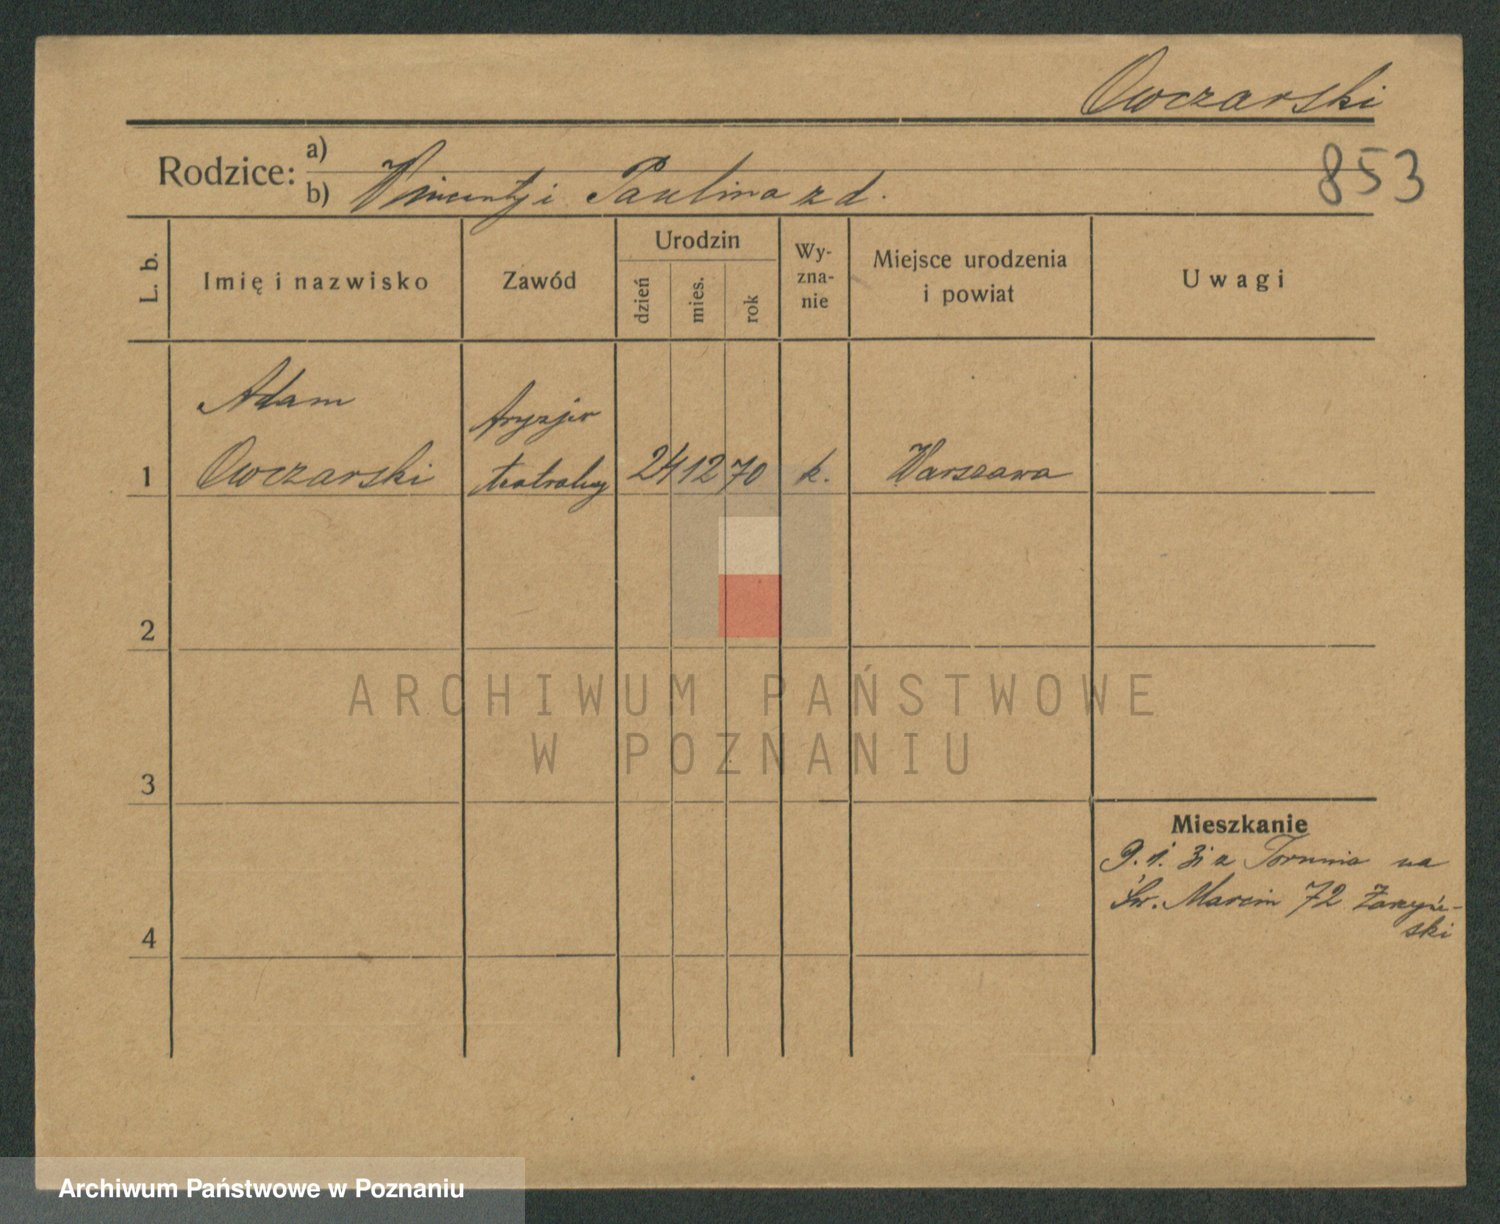 Owczarski
853
Rodzice: a)
b) Wincenty i Paulina z d.
L. b.
Imię i nazwisko
Zawód
Urodzin
dzień
mies.
rok
Wy-
zna-
nie
Miejsce urodzenia
i powiat
Uwagi
Adam
Owczarski
fryzjer
teatralny
1
24 12 70
k.
Warszawa
2
3
4
ARCHIWUM PAŃSTWOWE
W POZNANIU
Mieszkanie
9. 1. 31 z Torunia na
Św. Marcin 72 Żarzyń-
ski
Archiwum Państwowe w Poznaniu